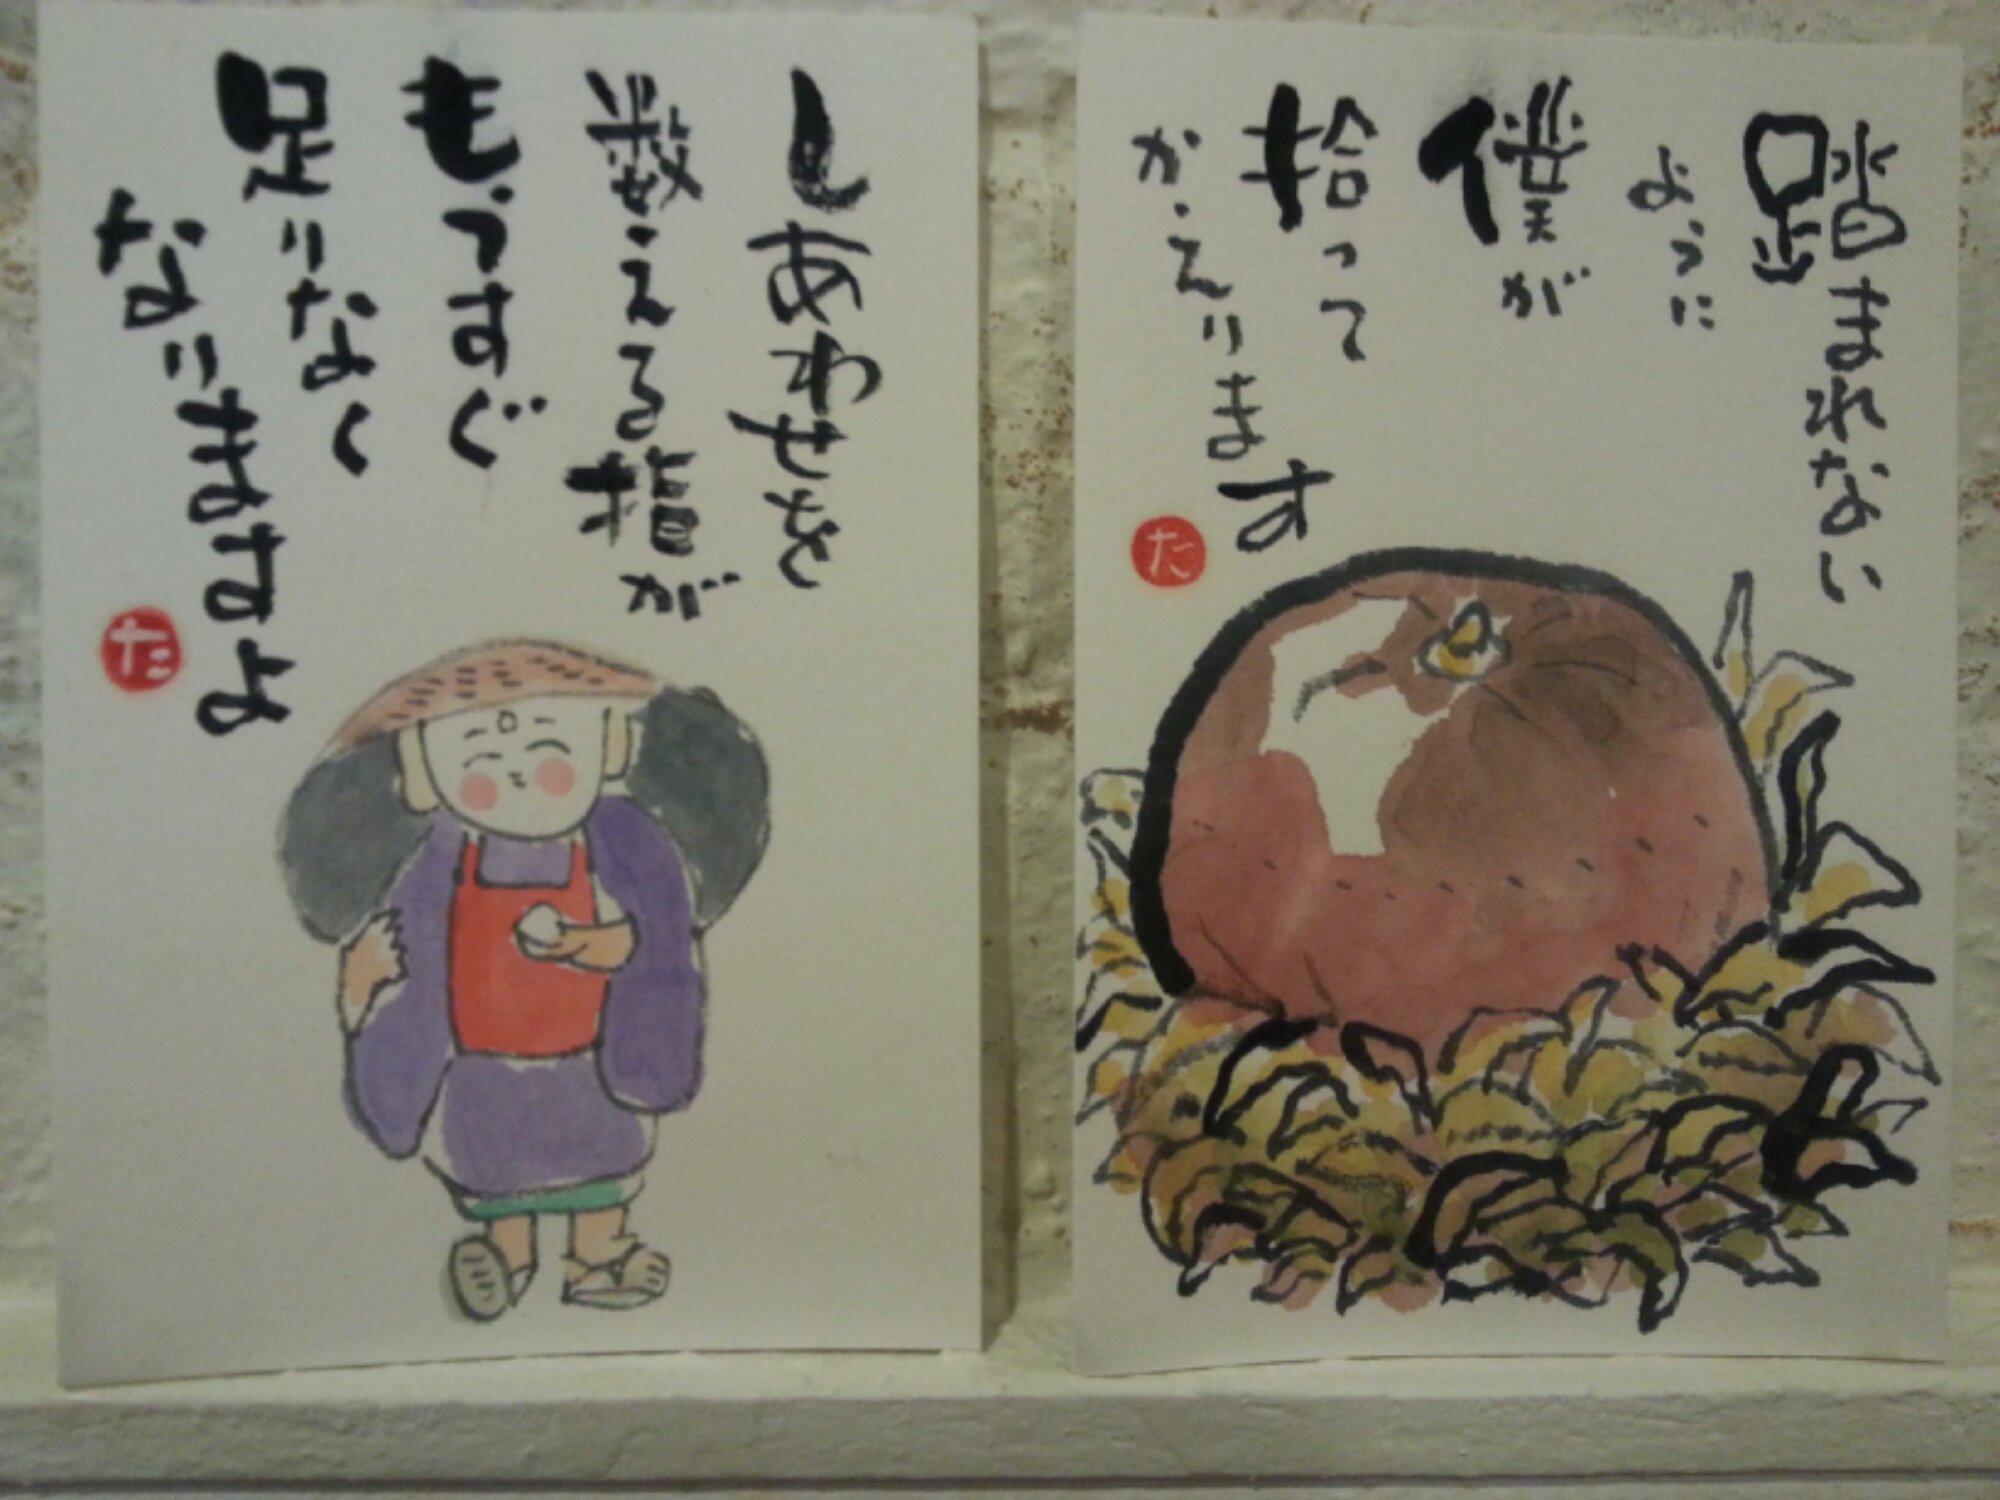 しあわせを
数える指が
もうすぐ
足りなく
なりますよ
た
踏まれない
ように
僕が
拾って
かえります
た